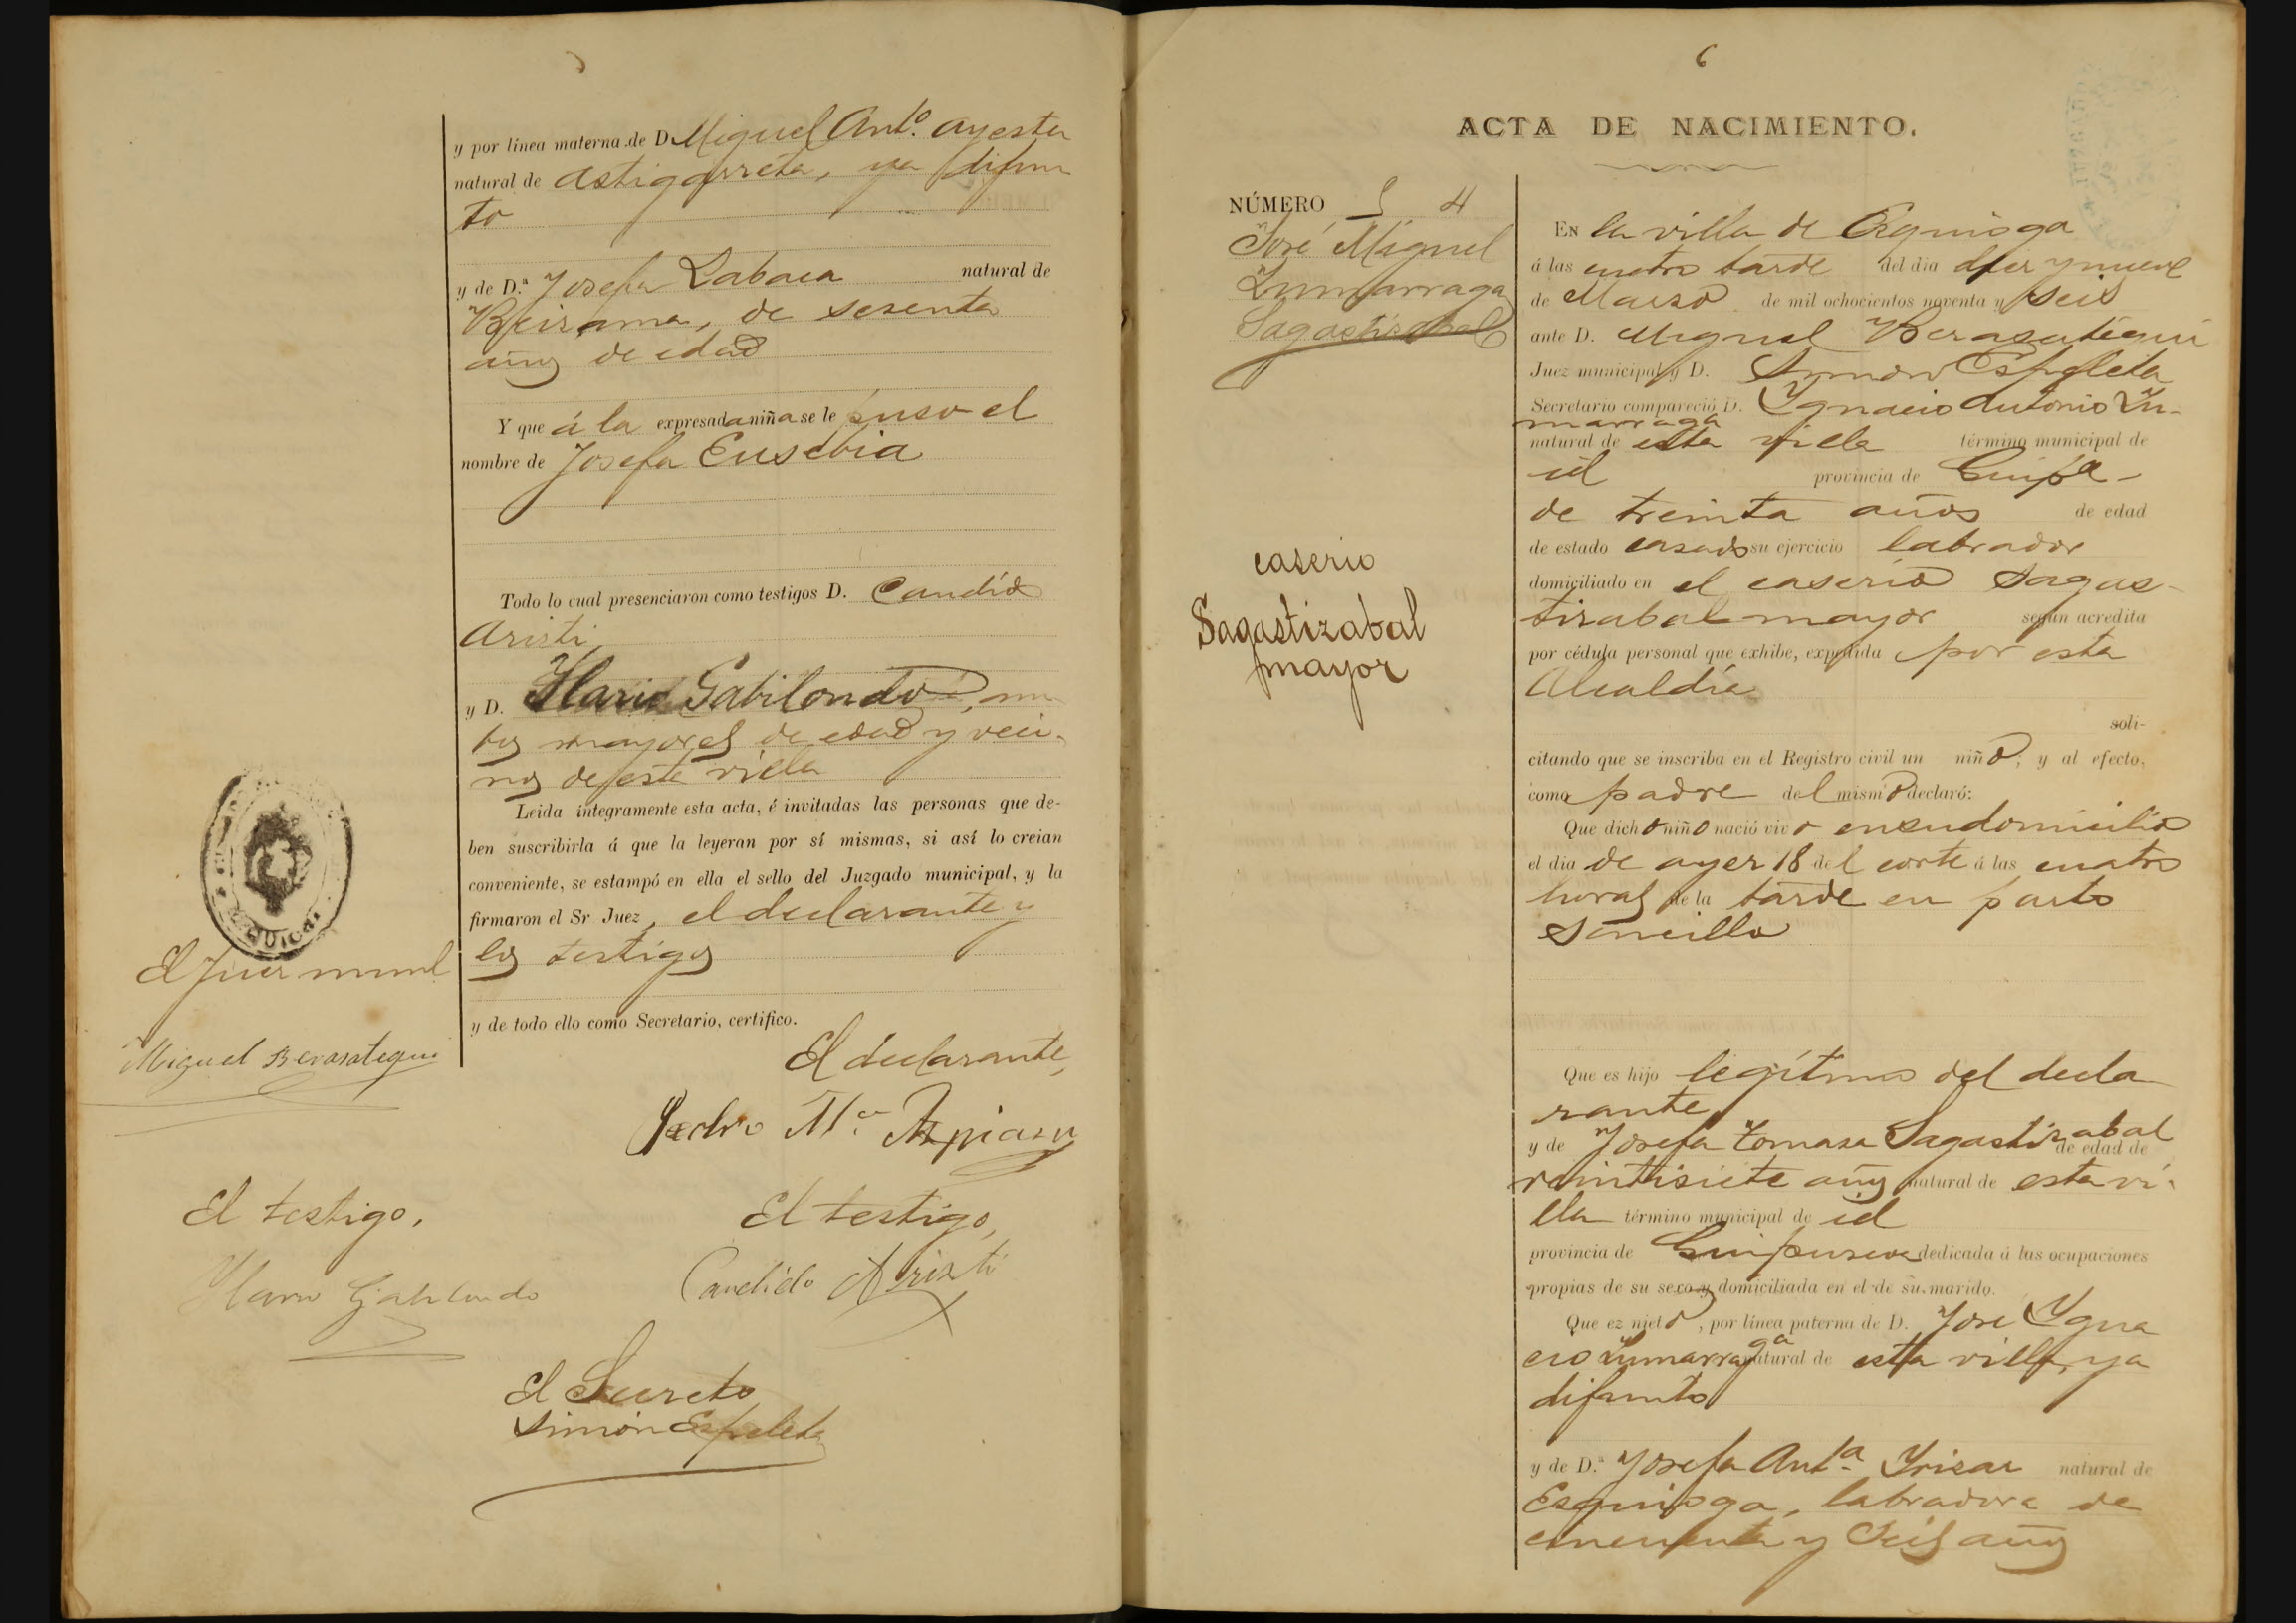 y por línea materna de D. Miguel Antº. Ayesta
natural de Astigarreta, ya difun
to
y de D.ª Josefa Labaca natural de
Beizama, de sesenta
años de edad
Y que á la expresada niña se le puso el
nombre de Josefa Eusebia
Todo lo cual presenciaron como testigos D. Candido
Aristi
y D. Ylario Gabilondo, am
bos mayores de edad y veci-
nos de esta villa
Leida íntegramente esta acta, é invitadas las personas que de-
ben suscribirla á que la leyeran por sí mismas, si así lo creian
conveniente, se estampó en ella el sello del Juzgado municipal, y la
firmaron el Sr Juez, el declarante y
los testigos
y de todo ello como Secretario, certifico.
El Juez munl
Miguel Berasategui
El declarante,
Pedro Mª Azpiazu
El testigo,
Candido Aristi
El testigo.
Ylario Gabilondo
El Secreto
Simón Espeleta
6
ACTA DE NACIMIENTO.
NÚMERO 4
José Miguel
Zumarraga
Sagastizabal
caserio
Sagastizabal
mayor
EN la villa de Ezquioga
á las cuatro tarde del dia diez y nueve
de Marzo de mil ochocientos noventa y seis
ante D. Miguel Berasategui
Juez municipal y D. Simon Espeleta
Secretario compareció D. Ygnacio Antonio Zu-
marraga
natural de esta villa término municipal de
id provincia de Guipa-
de treinta años de edad
de estado casado su ejercicio labrador
domiciliado en el caserio Sagas-
tizabal mayor según acredita
por cédula personal que exhibe, expedida por esta
Alcaldía
soli-
citando que se inscriba en el Registro civil un niño, y al efecto,
como padre del mismo declaró:
Que dicho niño nació vivo en su domicilio
el dia de ayer 18 del corte á las cuatro
horas de la tarde en parto
sencillo
Que es hijo legítimo del decla
rante
y de Josefa Tomasa Sagastizabal
de edad de
veintisiete años natural de esta vi-
lla término municipal de id
provincia de Guipuzcoa dedicada á las ocupaciones
propias de su sexo y domiciliada en el de su marido.
Que ez nieto, por línea paterna de D. José Ygna
cio Zumarraga natural de esta villa, ya
difunto
y de D.ª Josefa Antª Yrizar natural de
Ezquioga, labradora de
cincuenta y seis años